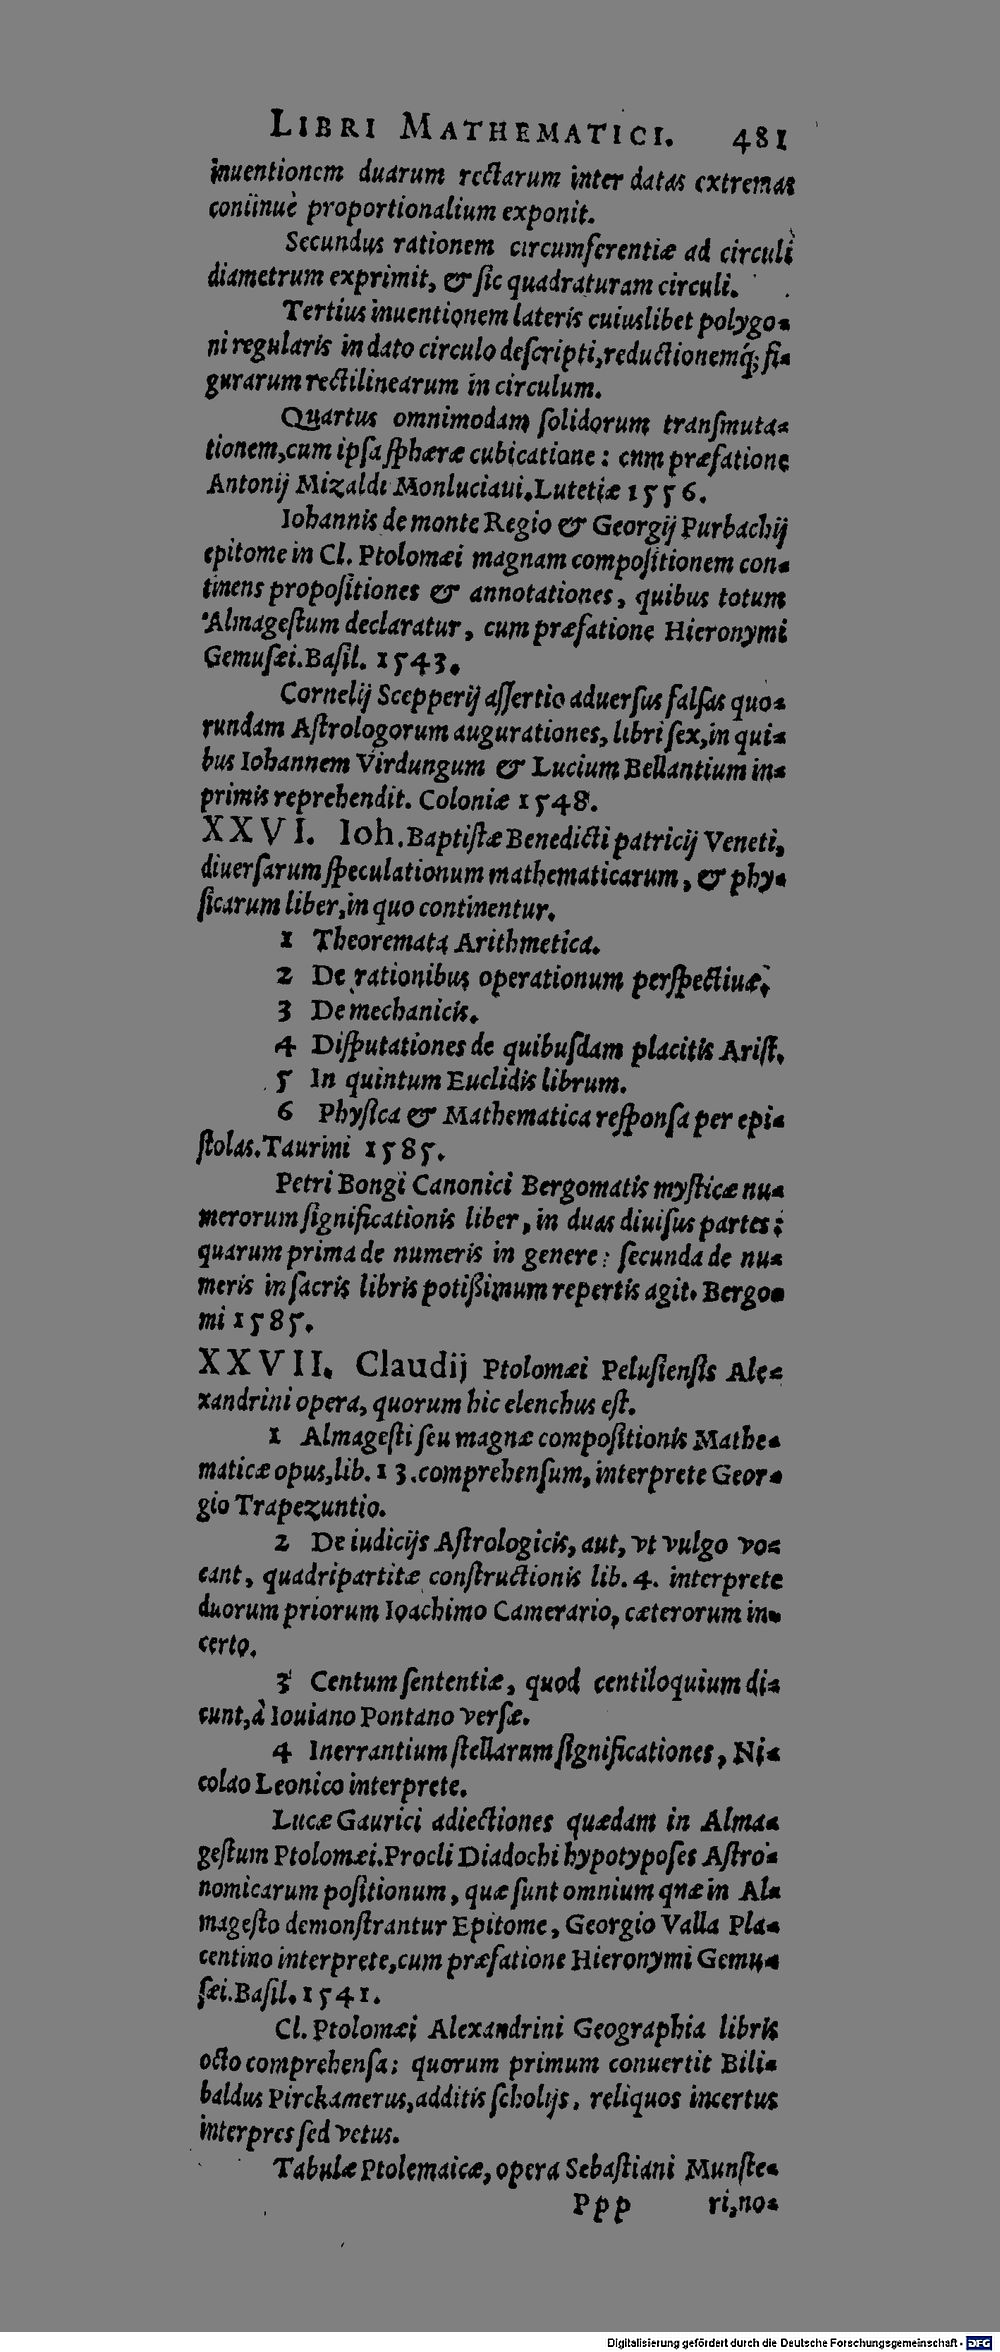 LIBRI MATHEMATICI. 481
inuentionem duarum rectarum inter datas extremas
coniinuè proportionalium exponit.
Secundus rationem circumferentiæ ad circuli
diametrum exprimit, & ſic quadraturam circuli.
Tertius inuentionem lateris cuiuslibet polygo-
ni regularis in dato circulo deſcripti, reductionemq́; fi-
gurarum rectilinearum in circulum.
Quartus omnimodam ſolidorum tranſmuta-
tionem, cum ipſa ſphæræ cubicatione: cnm præfatione
Antonij Mizaldi Monluciaui. Lutetiæ 1556.
Iohannis de monte Regio & Georgij Purbachij
epitome in Cl. Ptolomæi magnam compoſitionem con-
tinens propoſitiones & annotationes, quibus totum
Almageſtum declaratur, cum præfatione Hieronymi
Gemuſæi. Baſil. 1543.
Cornelij Scepperij aſſertio aduerſus falſas quo-
rundam Aſtrologorum augurationes, libri ſex, in qui-
bus Iohannem Virdungum & Lucium Bellantium in-
primis reprehendit. Coloniæ 1548.
XXVI. Ioh. Baptiſtæ Benedicti patricij Veneti,
diuerſarum ſpeculationum mathematicarum, & phy-
ſicarum liber, in quo continentur.
1 Theoremata Arithmetica.
2 De rationibus operationum perſpectiuæ.
3 De mechanicis.
4 Diſputationes de quibuſdam placitis Ariſt.
5 In quintum Euclidis librum.
6 Phyſica & Mathematica reſponſa per epi-
ſtolas. Taurini 1585.
Petri Bongi Canonici Bergomatis myſticæ nu-
merorum ſignificationis liber, in duas diuiſus partes:
quarum prima de numeris in genere: ſecunda de nu-
meris in ſacris libris potiſsimum repertis agit. Bergo-
mi 1585.
XXVII. Claudij Ptolomæi Peluſienſis Ale-
xandrini opera, quorum hic elenchus eſt.
1 Almageſti ſeu magnæ compoſitionis Mathe-
maticæ opus, lib. 13. comprehenſum, interprete Geor-
gio Trapezuntio.
2 De iudicijs Aſtrologicis, aut, vt vulgo vo-
cant, quadripartitæ conſtructionis lib. 4. interprete
duorum priorum Ioachimo Camerario, cæterorum in-
certo.
3 Centum ſententiæ, quod centiloquium di-
cunt, à Iouiano Pontano verſæ.
4 Inerrantium ſtellarum ſignificationes, Ni-
colao Leonico interprete.
Lucæ Gaurici adiectiones quædam in Alma-
geſtum Ptolomæi. Procli Diadochi hypotypoſes Aſtro-
nomicarum poſitionum, quæ ſunt omnium qnæ in Al-
mageſto demonſtrantur Epitome, Georgio Valla Pla-
centino interprete, cum præfatione Hieronymi Gemu-
ſæi. Baſil. 1541.
Cl. Ptolomæi Alexandrini Geographia libris
octo comprehenſa: quorum primum conuertit Bili-
baldus Pirckamerus, additis ſcholijs, reliquos incertus
interpres ſed vetus.
Tabulæ Ptolemaicæ, opera Sebaſtiani Munſte-
Ppp ri, no-
Digitalisierung gefördert durch die Deutsche Forschungsgemeinschaft - DFG